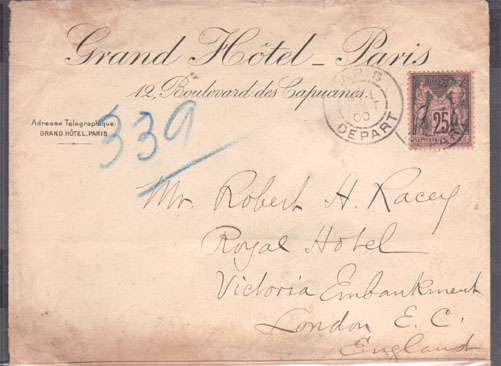 Grand Hôtel – Paris
12, Boulevard des Capucines.
Adresse Télégraphique:
GRAND HÔTEL, PARIS
339
PARIS
00
DEPART
25
Mr. Robert H. Racey
Royal Hotel
Victoria Embankment
London E. C.
England